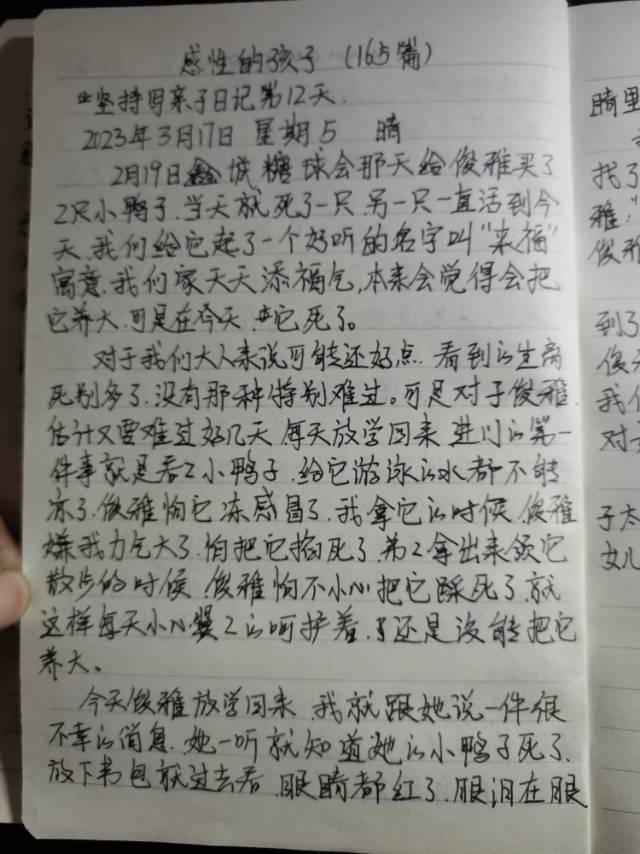 感性的孩子 (165篇)
坚持写亲子日记第12天.
2023年3月17日 星期5 晴
2月19日鑫城糖球会那天给俊雅买了
2只小鸭子.当天就死了一只.另一只一直活到今
天.我们给它起了一个好听的名字叫"来福"
寓意.我们家天天添福气,本来会觉得会把
它养大.可是在今天.它死了。
对于我们大人来说可能还好点.看到的生离
死别多了.没有那种特别难过。可是对于俊雅.
估计又要难过好几天.每天放学回来.进门的第一
件事就是看之小鸭子.给它游泳的水都不能
凉了.俊雅怕它冻感冒了.我拿它的时候.俊雅
嫌我力气大了.怕把它掐死了.弟之拿出来领它
散步的时候.俊雅怕不小心把它踩死了.就
这样每天小心翼之的呵护着.还是没能把它
养大。
今天俊雅放学回来.我就跟她说一件很
不幸的消息.她一听就知道她的小鸭子死了.
放下书包就过去看.眼睛都红了.眼泪在眼
晴里
找了
雅:"
俊雅
到了
俊
我们
对
子太
女儿